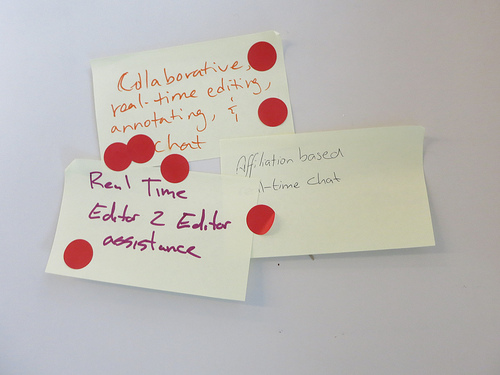 Collaborative,
real-time editing,
annotating, &
chat
Real Time
Editor 2 Editor
assistance
Affiliation based
l-time chat